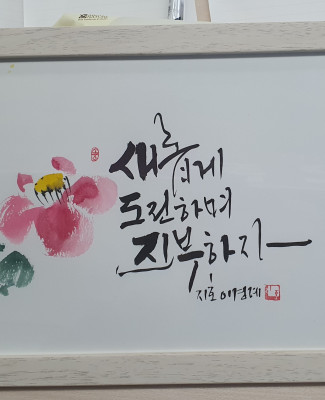 새롭게
도전하며
진부하지
지호 이경례